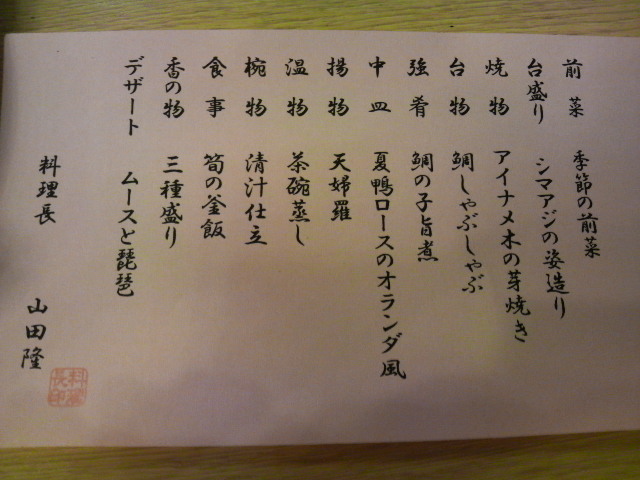 前菜 季節の前菜
台盛り シマアジの姿造り
焼物 アイナメ木の芽焼き
台物 鯛しゃぶしゃぶ
強肴 鯛の子旨煮
中皿 夏鴨ロースのオランダ風
揚物 天婦羅
温物 茶碗蒸し
椀物 清汁仕立
食事 筍の釜飯
香の物 三種盛り
デザート ムースと琵琶
料理長 山田隆